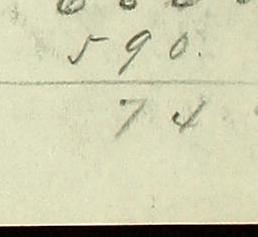 590.
74